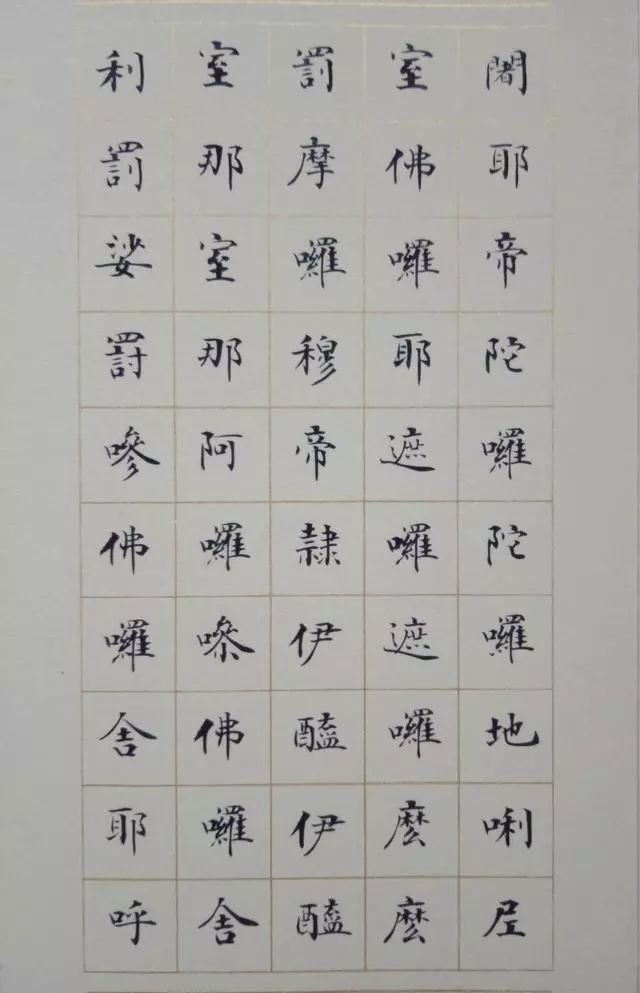 闍耶帝陀囉陀囉地唎尼
室佛囉耶遮囉遮囉麼麼
罰摩囉穆帝隸伊醯伊醯
室那室那阿囉嘇佛囉舍
利罰娑罰嘇佛囉舍耶呼